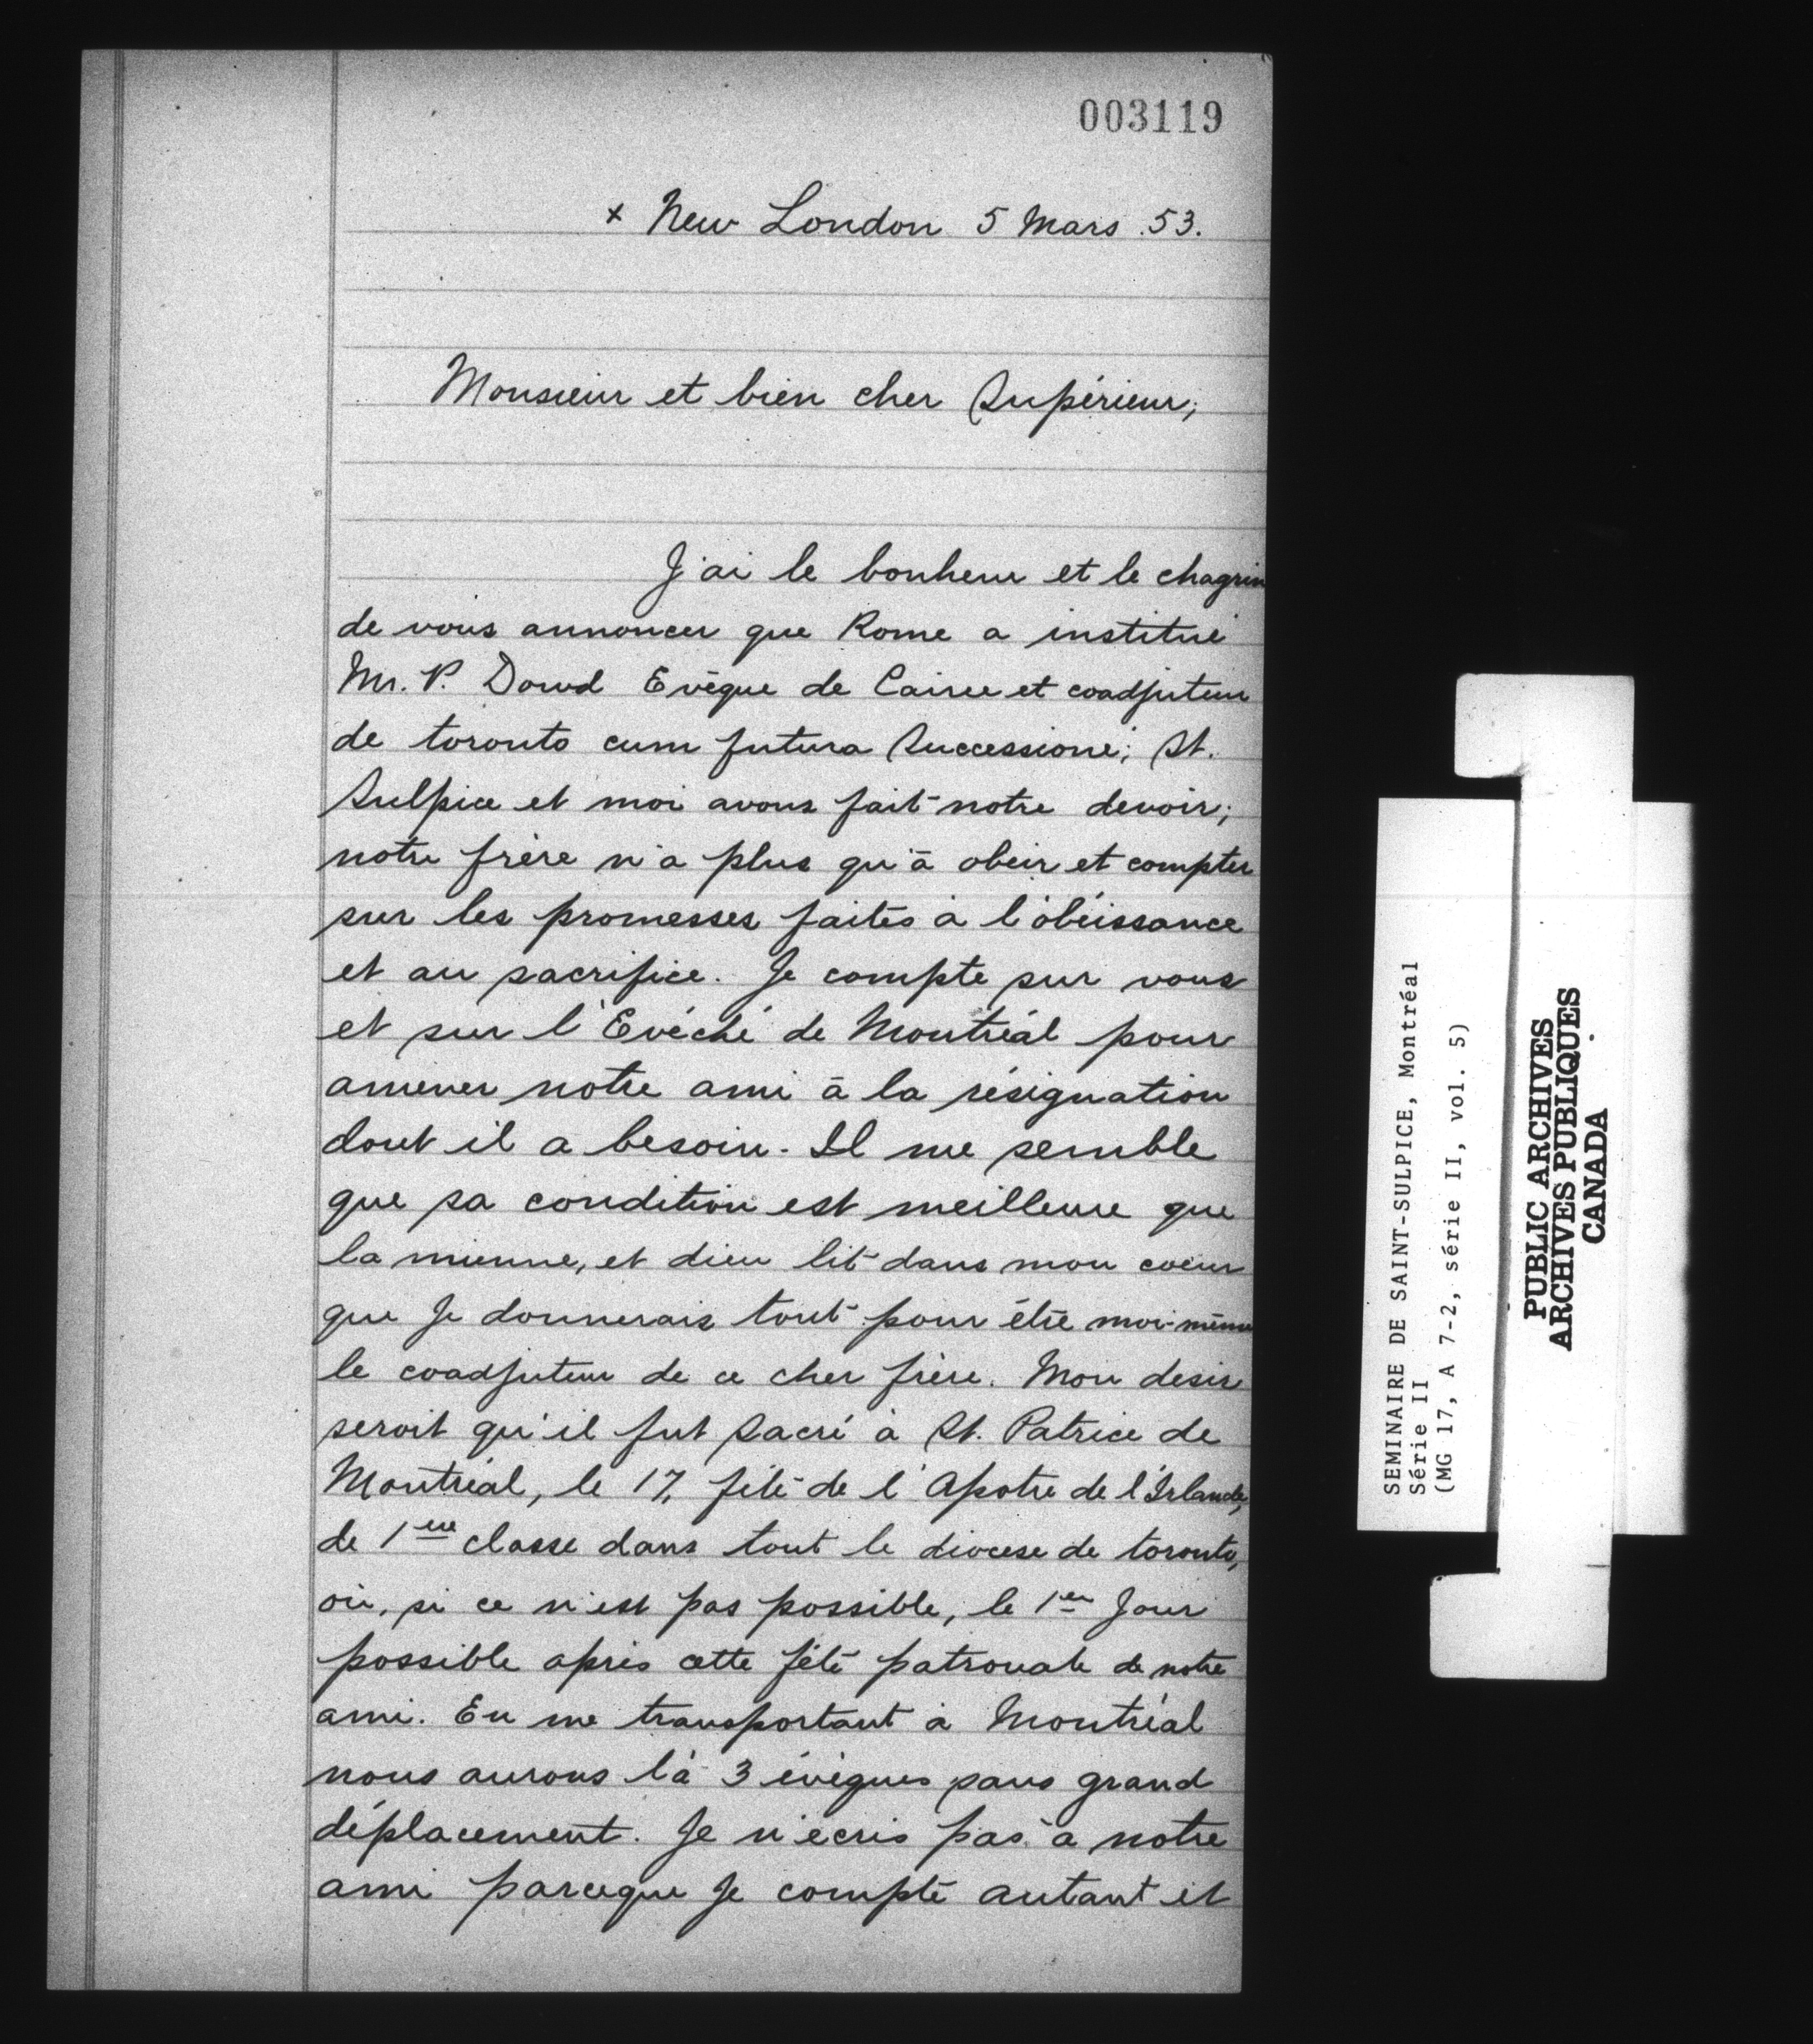 003119
x New London 5 Mars .53.
Monsieur et bien cher Supérieur;
J'ai le bonheur et le chagrin
de vous annoncer que Rome a institué
Mr. P. Dowd Evêque de Canée et coadjuteur
de toronto cum futura Successione; St.
Sulpice et moi avons fait notre devoir;
notre frère n'a plus qu'à obeir et compter
sur les promesses faites à l'obéissance
et au sacrifice. Je compte sur vous
et sur l'Evéché de Montréal pour
amener notre ami à la résignation
dont il a besoin. Il me semble
que sa condition est meilleure que
la mienne, et dieu lit dans mon coeur
que Je donnerais tout pour être moi-même
le coadjuteur de ce cher frère. Mon desir
seroit qu'il fut Sacré à St. Patrice de
Montréal, le 17, fête de l'Apotre de l'Irlande,
de 1ere classe dans tout le diocese de toronto,
ou, si ce n'est pas possible, le 1er Jour
possible après cette fête patronale de notre
ami. En me transportant à Montréal
nous aurons là 3 évèques sans grand
déplacement. Je n'écris pas à notre
ami parceque Je compte autant et
SEMINAIRE DE SAINT-SULPICE, Montréal
Série II
(MG 17, A 7-2, série II, vol. 5)
PUBLIC ARCHIVES
ARCHIVES PUBLIQUES
CANADA